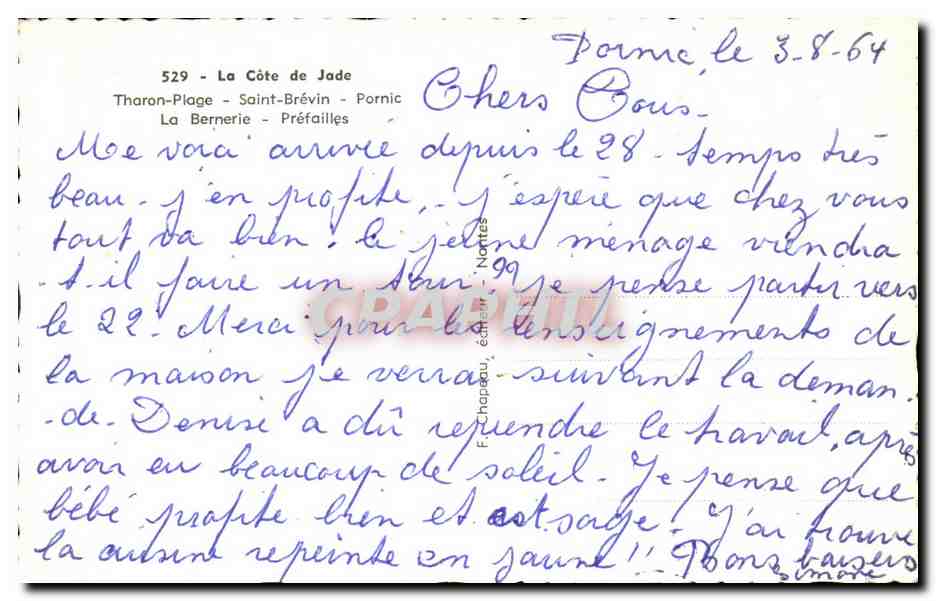 Pornic, le 3-8-64
529 - La Côte de Jade
Tharon-Plage - Saint-Brévin - Pornic
La Bernerie - Préfailles
Chers Tous -
Me voici arrivée depuis le 28 - temps très
beau - j'en profite, - j'espère que chez vous
tout va bien. le jeune ménage viendra
-t-il faire un tour ?? je pense partir vers
le 22. Merci pour les renseignements de
la maison je verrai suivant la deman.
-de- Denise a dû reprendre le travail, après
avoir eu beaucoup de soleil - Je pense que
bébé profite bien et est sage - J'ai trouvé
la cuisine repeinte en jaune !! Bons baisers
Simone
F. Chapeau, éditeur - Nantes